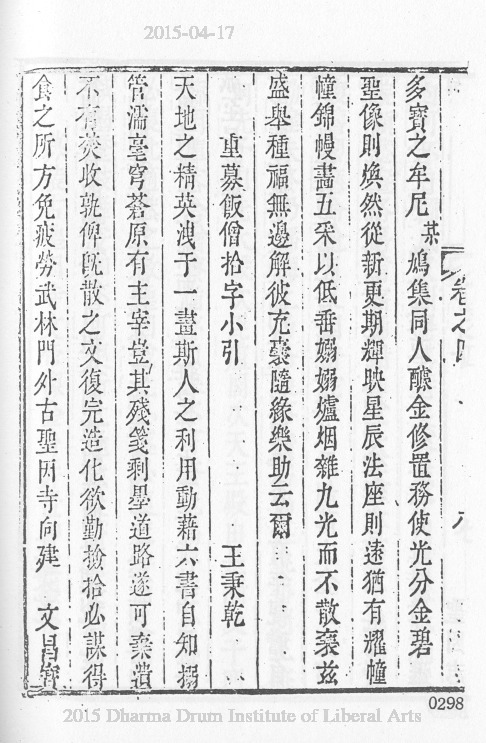 2015-04-17
卷之四 八
多寶之牟尼某鳩集同人醵金修置務使光分金碧
聖像則煥然從新更期輝映星辰法座則遠猶有耀幢
幢錦幔畵五采以低垂嫋嫋爐烟雜九光而不散裒茲
盛舉種福無邊解彼充囊隨緣樂助云爾
重募飯僧拾字小引 王秉乾
天地之精英洩于一畫斯人之利用動藉六書自知搦
管濡毫穹蒼原有主宰豈其殘箋剩墨道路遂可棄遺
不有焚收孰俾既散之文復完造化欲勤撿拾必謀得
食之所方免疲勞武林門外古聖因寺向建 文昌
0298
2015 Dharma Drum Institute of Liberal Arts